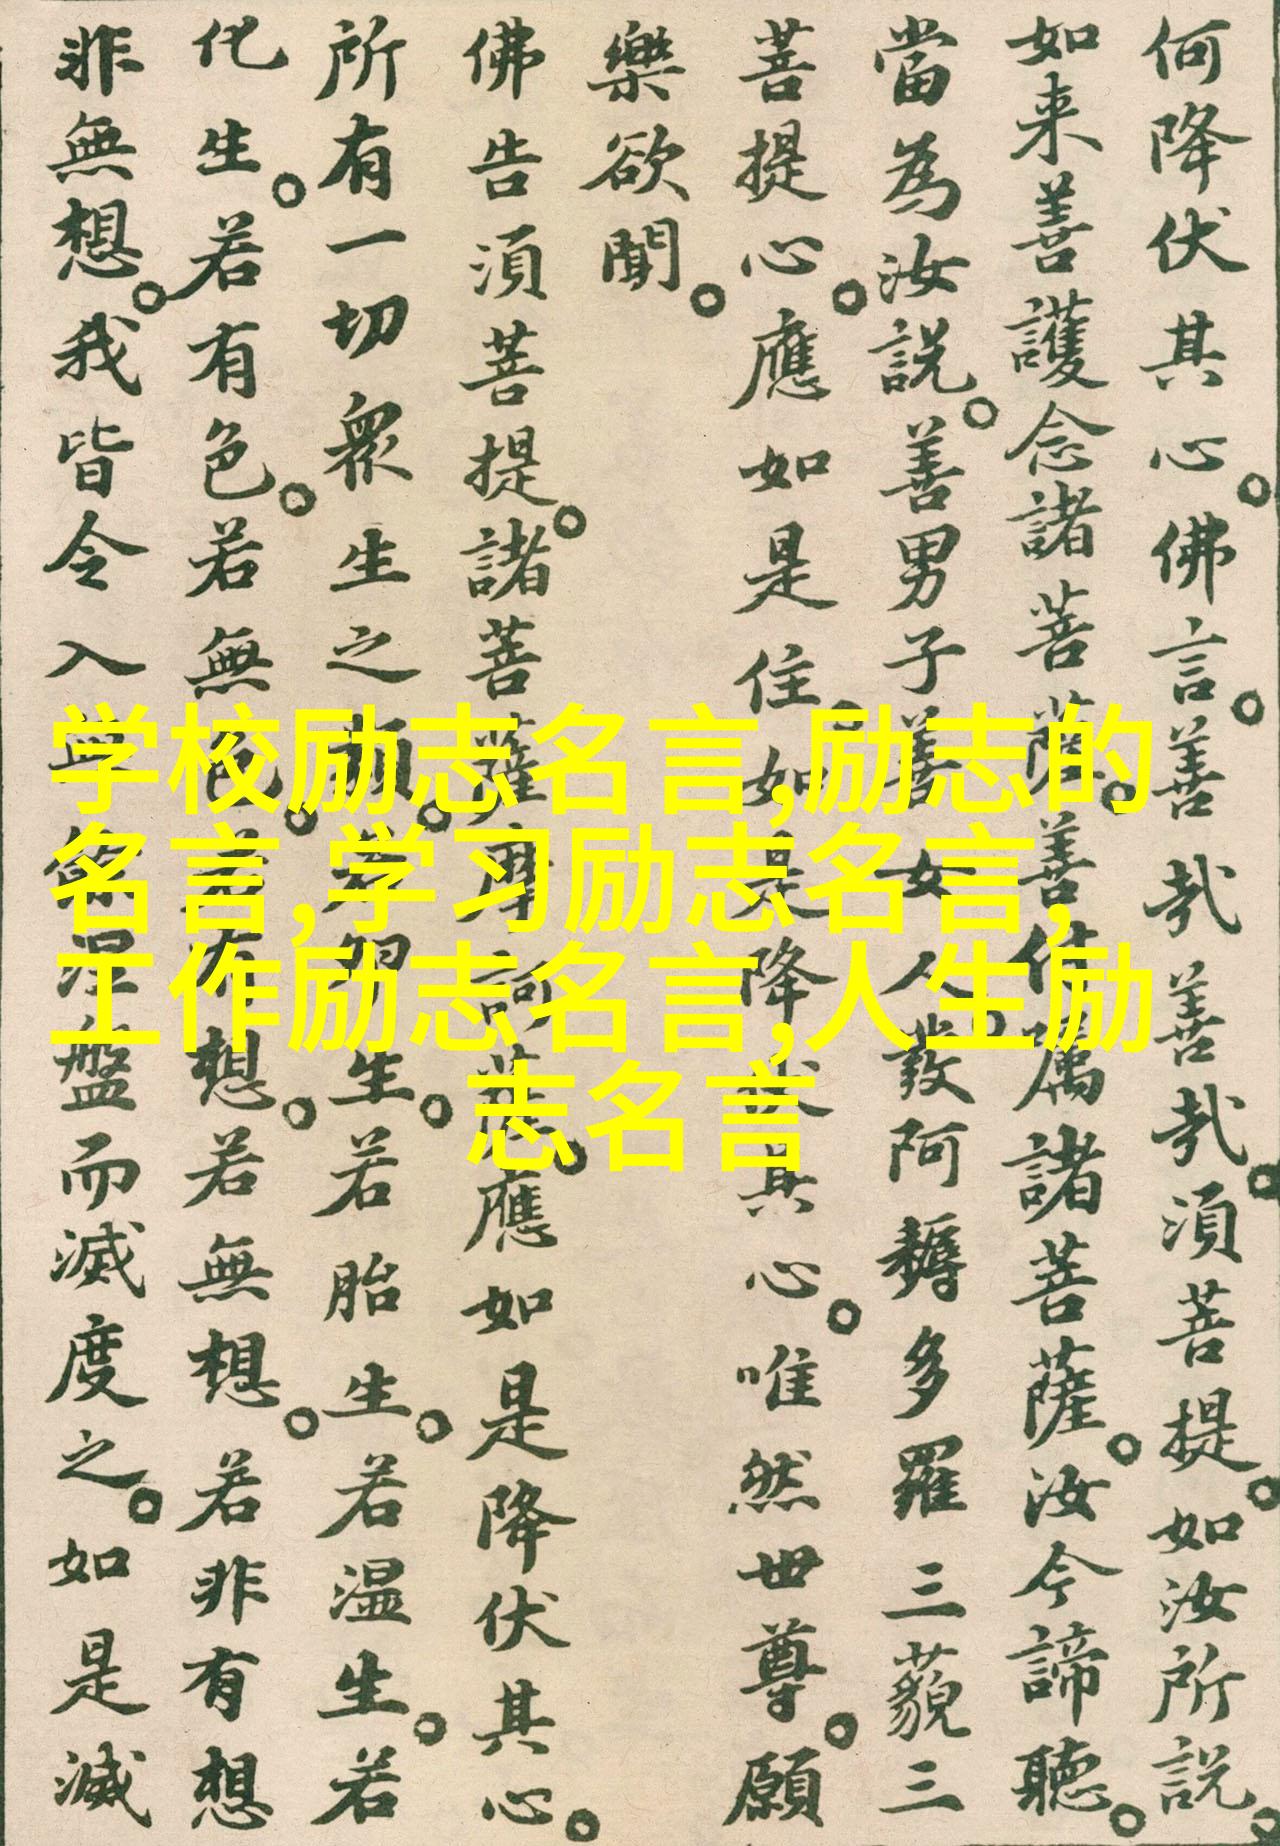 何降伏其心。佛言。善哉善哉。須菩提。如汝所説。
如来善護念諸菩薩。善付属諸菩薩。汝今諦聽。
當為汝説。善男子善女人。發阿耨多羅三藐三
菩提心。應如是住。如是降伏其心。唯然世尊。願
樂欲聞。
佛告須菩提。諸菩薩摩訶薩。應如是降伏其心。
所有一切衆生之類。若卵生。若胎生。若温生。若
化生。若有色。若無色。若有想。若無想。若非有想
非無想。我皆令入無餘涅盤而滅度之。如是滅
学校励志名言,励志的
名言,学习励志名言,
工作励志名言,人生励
志名言